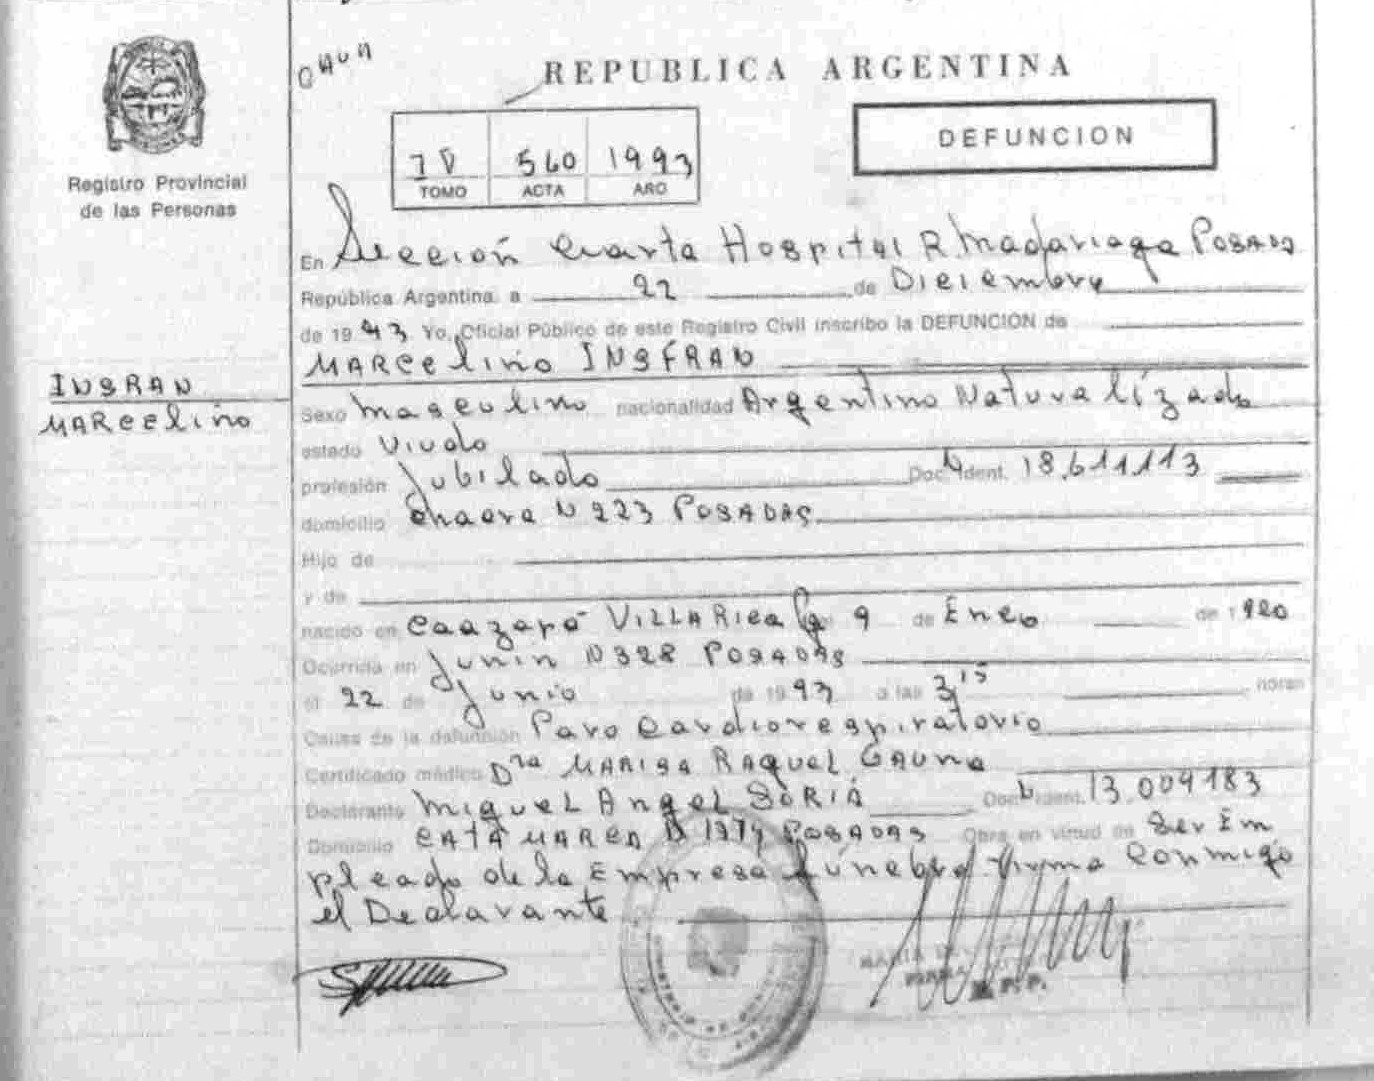 GAUNA
REPUBLICA ARGENTINA
DEFUNCION
560 1993
TOMO ACTA AÑO
Registro Provincial
de las Personas
En Sección Cuarta Hospital R. Madariaga POSADAS
República Argentina a 22 de Diciembre
de 1993 Yo, Oficial Público de este Registro Civil inscribo la DEFUNCION de
MARCELINO INSFRAN
INSRAN
MARCELINO
Sexo Masculino nacionalidad Argentino Naturalizado
estado Viudo
profesión Jubilado Doc. Ident. 18.611.113
domicilio Chacra N 223 POSADAS
Hijo de
y de
nacido en Caazapá VILLA RICA 9 de Enero de 1920
Ocurrida en Junin N 328 POSADAS
el 22 de Junio de 1993 a las 3,15 horas
Causa de la defunción Paro Cardiorespiratorio
Certificado médico Dra MARISA RAQUEL GAUNA
Declarante MIGUEL ANGEL SORIA Doc. Ident. 13.009.183
Domicilio CATAMARCA N 1974 POSADAS Obra en virtud de Ser Em
pleado de la Empresa fúnebre firma Conmigo
el Declarante